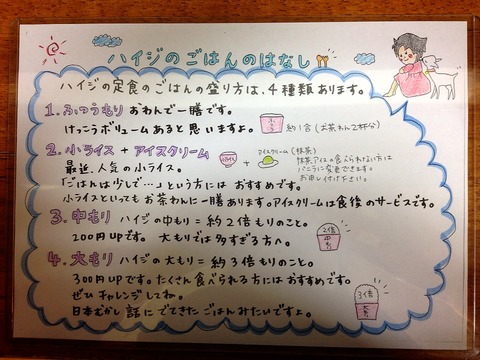 ハイジのごはんのはなし
ハイジの定食のごはんの盛り方は、4種類あります。
1. ふつうもり おわんで一膳です。
けっこうボリュームあると思いますよ。
ふつう
約1合(お茶わん2杯分)
2. 小ライス + アイスクリーム
最近、人気の小ライス。
「ごはんは少しで…」という方には おすすめです。
小ライスといってもお茶わんに一膳あります。アイスクリームは食後のサービスです。
小ライス
+
アイスクリーム(抹茶)
抹茶アイスの食べられない方は
バニラに変更できます。
お申し付け下さい。
3. 中もり ハイジの中もり = 約2倍もりのこと。
200円UPです。 大もりでは多すぎる方へ。
2倍
中もり
4. 大もり ハイジの大もり = 約3倍もりのこと。
300円UPです。たくさん食べられる方にはおすすめです。
ぜひ チャレンジしてね。
日本むかし話にでてきたごはんみたいですよ。
3倍
大もり